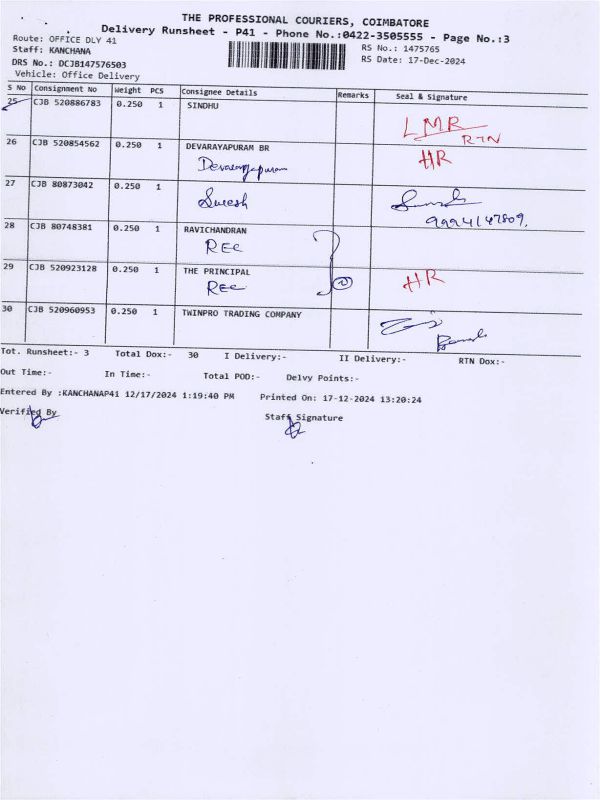 THE PROFESSIONAL COURIERS, COIMBATORE
Delivery Runsheet - P41 - Phone No.:0422-3505555 - Page No.:3
Route: OFFICE DLY 41
RS No.: 1475765
Staff: KANCHANA
RS Date: 17-Dec-2024
DRS No.: DCJB147576503
Vehicle: Office Delivery
S No Consignment No Weight PCS Consignee Details Remarks Seal & Signature
25 CJB 520886783 0.250 1 SINDHU
LMR
RTN
26 CJB 520854562 0.250 1 DEVARAYAPURAM BR
Devarayapuram
HR
27 CJB 80873042 0.250 1
Suresh
28 CJB 80748381 0.250 1 RAVICHANDRAN
REC
29 CJB 520923128 0.250 1 THE PRINCIPAL
REC
2
HR
30 CJB 520960953 0.250 1 TWINPRO TRADING COMPANY
Tot. Runsheet:- 3 Total Dox:- 30 I Delivery:- II Delivery:- RTN Dox:-
Out Time:- In Time:- Total POD:- Delvy Points:-
Entered By :KANCHANAP41 12/17/2024 1:19:40 PM Printed On: 17-12-2024 13:20:24
Verified By
Staff Signature